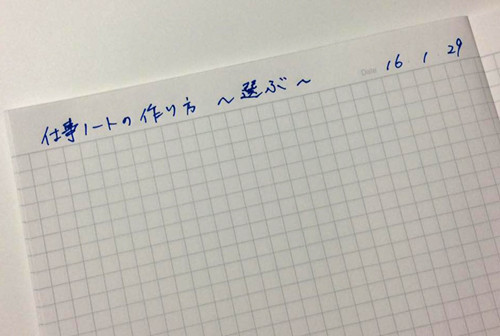 仕事ノートの作り方 〜選ぶ〜
Date 16. 1. 29